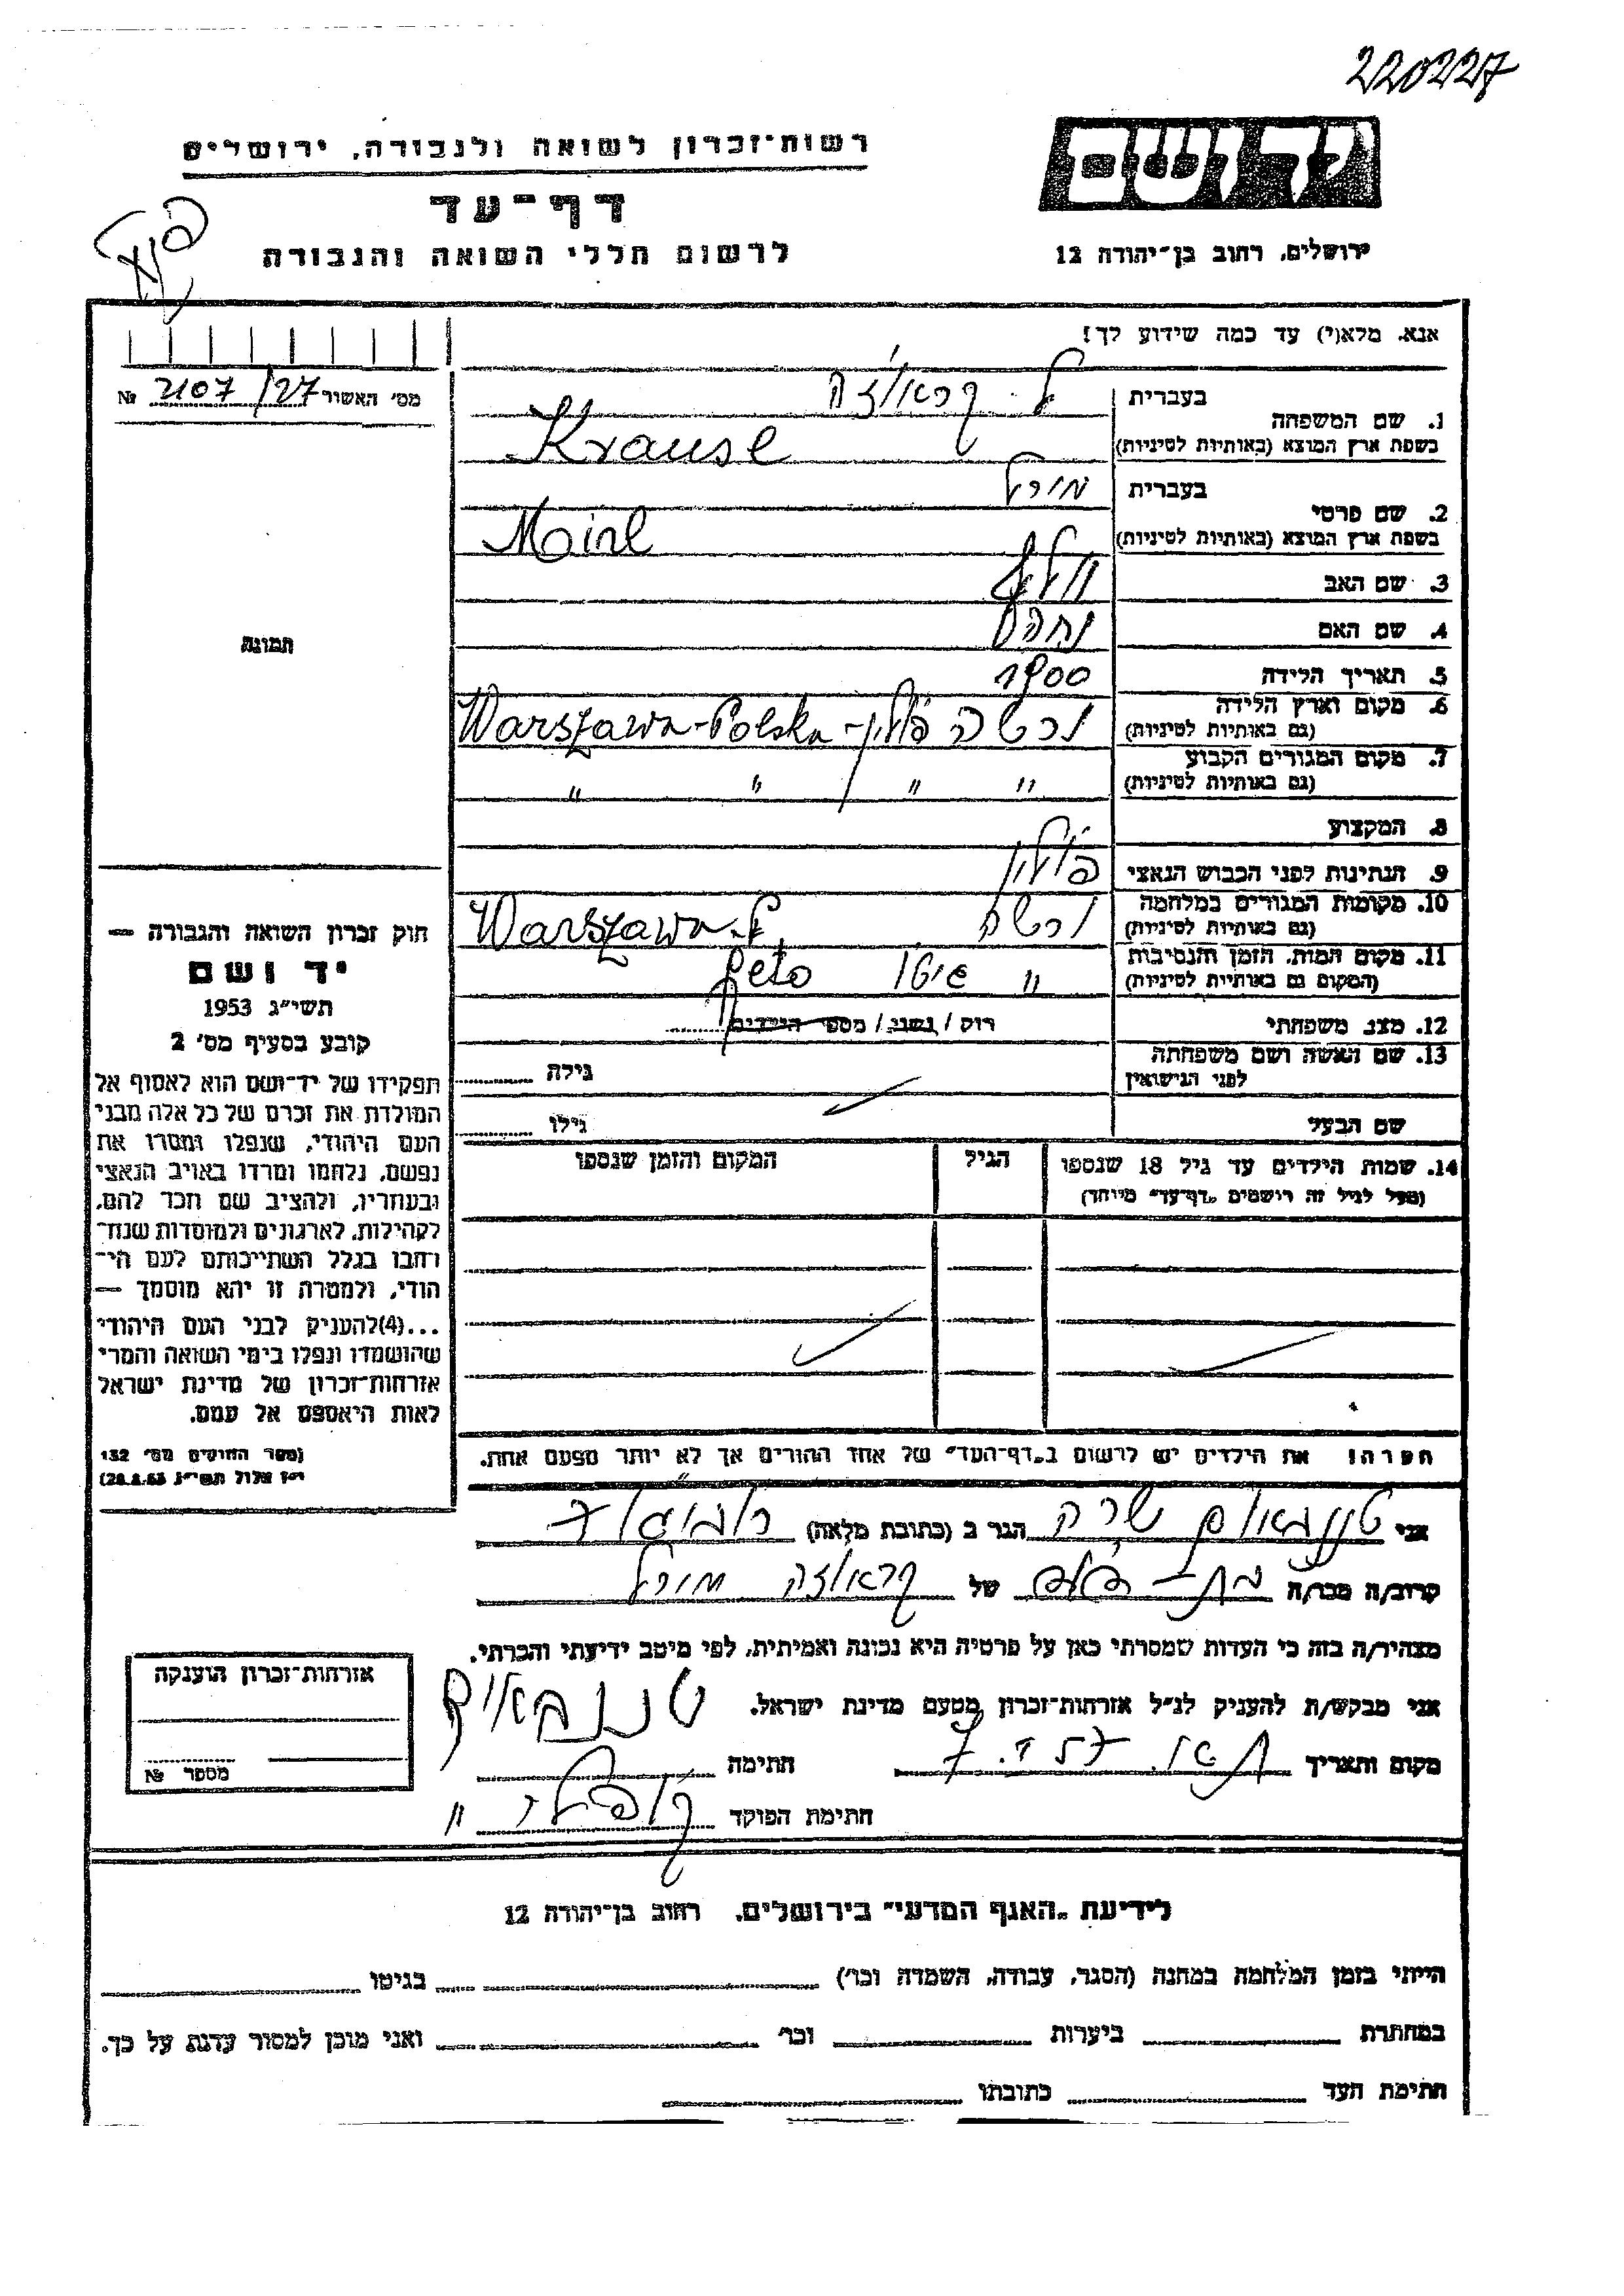 220227
רשות־זכרון לשואה ולגבורה, ירושלים
ידושם
דף־עד
לרשום חללי השואה והגבורה
ירושלים, רחוב בן־יהודה 12
אנא, מלא(י) עד כמה שידוע לך!
מס׳ האשור 2107/27 №
בעברית
1. שם המשפחה
בשפת ארץ המוצא (באותיות לטיניות) Krause
בעברית
2. שם פרטי
בשפת ארץ המוצא (באותיות לטיניות)
3. שם האב
4. שם האם
5. תאריך הלידה 1900
6. מקום וארץ הלידה ורשה פולין - Warszawa-Polska
(גם באותיות לטיניות)
7. מקום המגורים הקבוע
(גם באותיות לטיניות) " " " "
8. המקצוע
9. הנתינות לפני הכבוש הנאצי פולין
10. מקומות המגורים במלחמה ורשה Warszawa
(גם באותיות לטיניות)
11. מקום המות, הזמן והנסיבות " גיטו geto
(המקום גם באותיות לטיניות)
12. מצב משפחתי רווק / נשוי / מספר הילדים
13. שם האשה ושם משפחתה
לפני הנישואין גילה
שם הבעל גילו
14. שמות הילדים עד גיל 18 שנספו הגיל המקום והזמן שנספו
(מעל לגיל זה רושמים „דף־עד״ מיוחד)
תמונה
חוק זכרון השואה והגבורה —
יד ושם
תשי״ג 1953
קובע בסעיף מס׳ 2
תפקידו של יד־ושם הוא לאסוף אל
המולדת את זכרם של כל אלה מבני
העם היהודי, שנפלו ומסרו את
נפשם, נלחמו ומרדו באויב הנאצי
ובעוזריו, ולהציב שם וזכר להם,
לקהילות, לארגונים ולמוסדות שנח־
רבו בגלל השתייכותם לעם הי־
הודי, ולמטרה זו יהא מוסמך —
...(4)להעניק לבני העם היהודי
שהושמדו ונפלו בימי השואה והמרי
אזרחות־זכרון של מדינת ישראל
לאות היאספם אל עמם.
(ספר החוקים מס׳ 132
י״ז אלול תשי״ג 28.8.53)
הערה! את הילדים יש לרשום ב„דף־העד״ של אחד ההורים אך לא יותר מפעם אחת.
אני שרה הגר ב (כתובת מלאה)
קרוב/ה מכר/ה של
מצהיר/ה בזה כי העדות שמסרתי כאן על פרטיה היא נכונה ואמיתית, לפי מיטב ידיעתי והכרתי.
אני מבקש/ת להעניק לנ״ל אזרחות־זכרון מטעם מדינת ישראל.
מקום ותאריך חתימה
חתימת הפוקד
אזרחות־זכרון הוענקה
מספר №
לידיעת „האגף המדעי״ בירושלים, רחוב בן־יהודה 12
הייתי בזמן המלחמה במחנה (הסגר, עבודה, השמדה וכו׳) בגיטו
במחתרת ביערות וכו׳ ואני מוכן למסור עדות על כך.
חתימת העד כתובתו